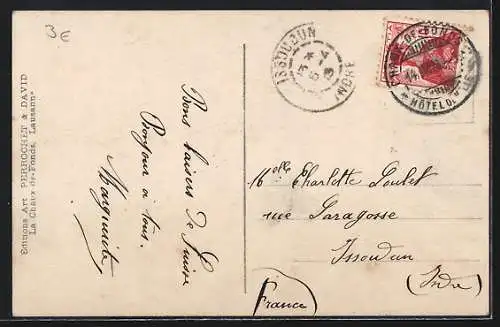 3€
Editions Art PERROCHET & DAVID
La Chaux-de-Fonds, Lausanne
Bons baisers de Suisse
Bonjour à tous.
Marguerite
ISSOUDUN
INDRE
HÔTEL DE
Mlle Charlotte Poulet
rue Saragosse
Issoudun
(Indre)
(France)